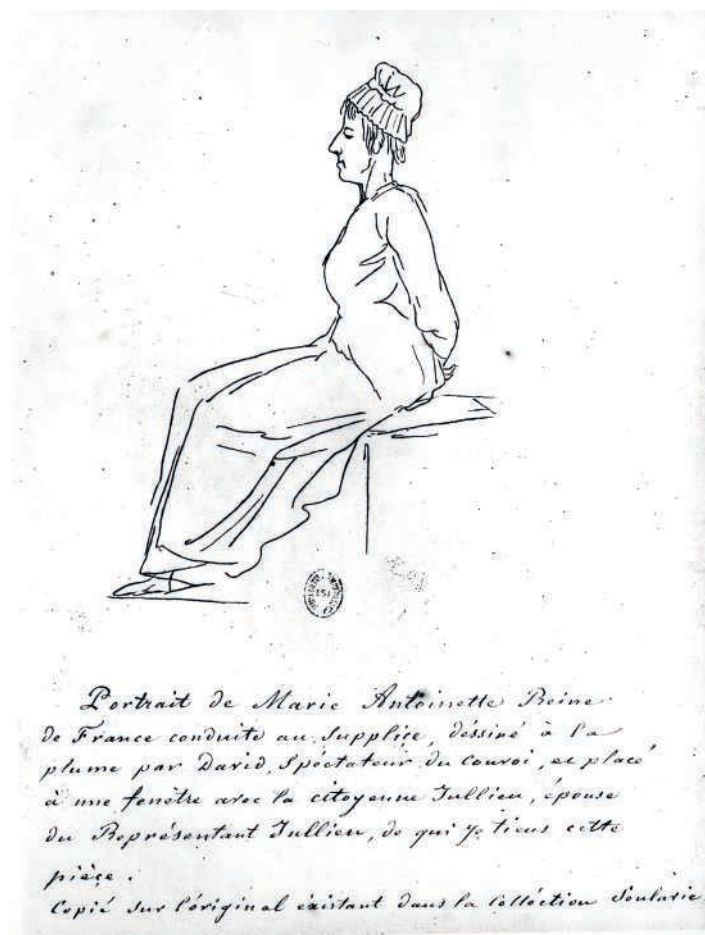 Portrait de Marie Antoinette Reine
de France conduite au Supplice, déssiné à la
plume par David, Spéctateur du Couvoi, et placé
à une fenêtre avec la citoyenne Jullien, épouse
du Représentant Jullien, de qui je tiens cette
pièce.
Copié sur l'original éxistant dans la Colléction Soularie